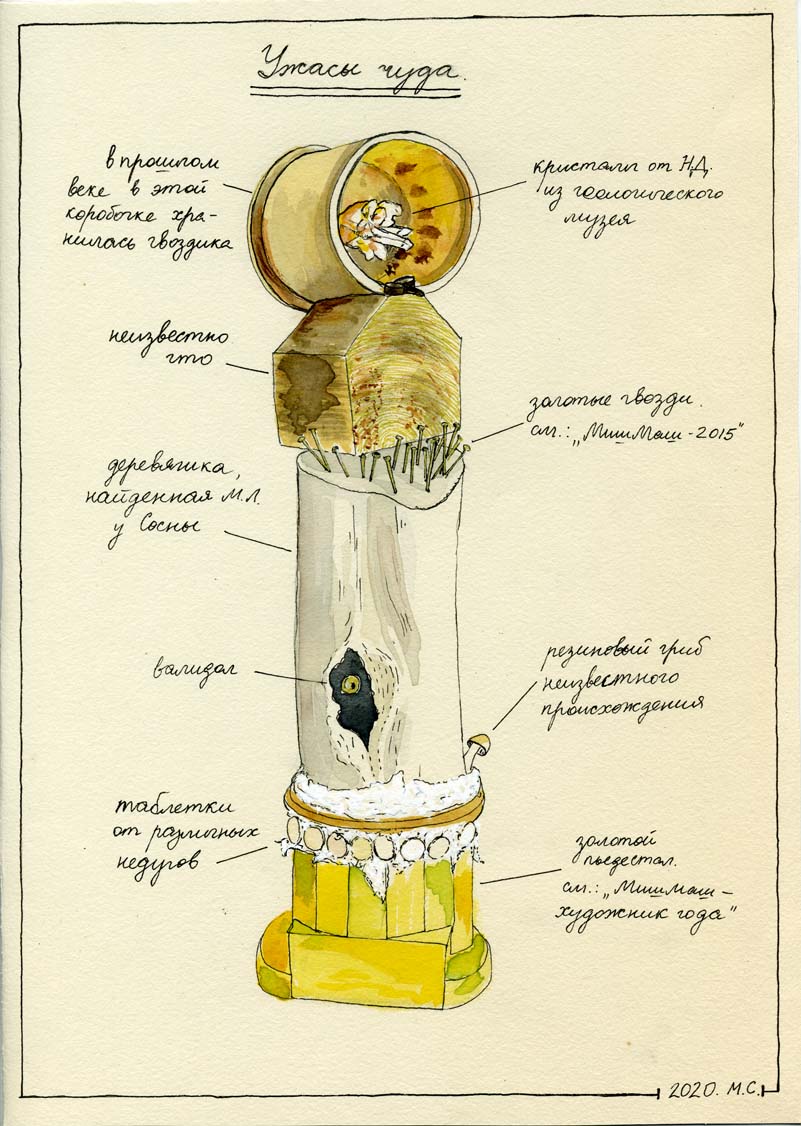 Ужасы чуда.
в прошлом
веке в этой
коробочке хра-
нилась гвоздика
кристалы от Н.Д.
из геологического
музея
неизвестно
что
золотые гвозди.
см.: „МишМаш-2015"
деревяшка,
найденная М.Л.
у Сосны
валидол
резиновый гриб
неизвестного
происхождения
таблетки
от различных
недугов
золотой
пьедестал.
см.: „МишМаш-
художник года"
2020. М.С.